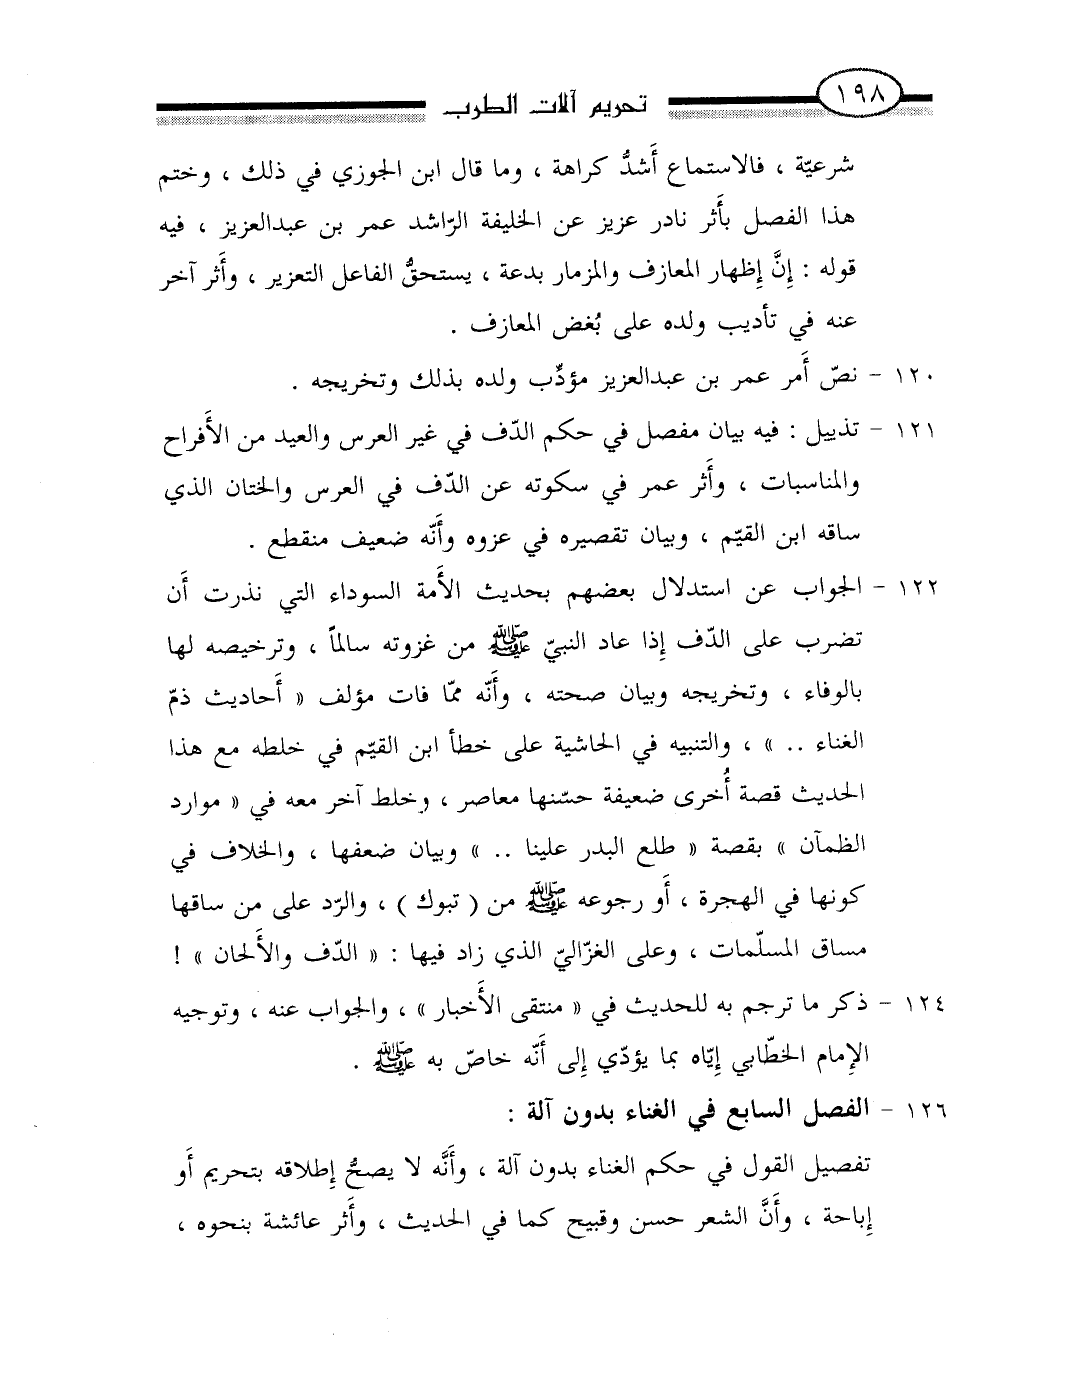 ١٩٨
تحريم آلات الطرب
شرعيّة ، فالاستماع أَشدُّ كراهة ، وما قال ابن الجوزي في ذلك ، وختم
هذا الفصل بأَثر نادر عزيز عن الخليفة الرّاشد عمر بن عبدالعزيز ، فيه
قوله : إِنَّ إِظهار المعازف والمزمار بدعة ، يستحقُّ الفاعل التعزير ، وأَثر آخر
عنه في تأديب ولده على بُغض المعازف .
١٢٠ - نصّ أَمر عمر بن عبدالعزيز مؤدِّب ولده بذلك وتخريجه .
١٢١ - تذييل : فيه بيان مفصل في حكم الدّف في غير العرس والعيد من الأَفراح
والمناسبات ، وأَثر عمر في سكوته عن الدّف في العرس والختان الذي
ساقه ابن القيّم ، وبيان تقصيره في عزوه وأَنّه ضعيف منقطع .
١٢٢ - الجواب عن استدلال بعضهم بحديث الأَمة السوداء التي نذرت أَن
تضرب على الدّف إِذا عاد النبيّ ﷺ من غزوته سالماً ، وترخيصه لها
بالوفاء ، وتخريجه وبيان صحته ، وأَنّه ممّا فات مؤلف « أَحاديث ذمّ
الغناء .. » ، والتنبيه في الحاشية على خطأ ابن القيّم في خلطه مع هذا
الحديث قصة أُخرى ضعيفة حسّنها معاصر ، وخلط آخر معه في « موارد
الظمآن » بقصة « طلع البدر علينا .. » وبيان ضعفها ، والخلاف في
كونها في الهجرة ، أَو رجوعه ﷺ من ( تبوك ) ، والرّد على من ساقها
مساق المسلّمات ، وعلى الغزّاليّ الذي زاد فيها : « الدّف والأَلحان » !
١٢٤ - ذكر ما ترجم به للحديث في « منتقى الأَخبار » ، والجواب عنه ، وتوجيه
الإِمام الخطّابي إِيّاه بما يؤدّي إِلى أَنّه خاصّ به ﷺ .
١٢٦ - الفصل السابع في الغناء بدون آلة :
تفصيل القول في حكم الغناء بدون آلة ، وأَنَّه لا يصحُّ إِطلاقه بتحريم أَو
إِباحة ، وأَنَّ الشعر حسن وقبيح كما في الحديث ، وأَثر عائشة بنحوه ،